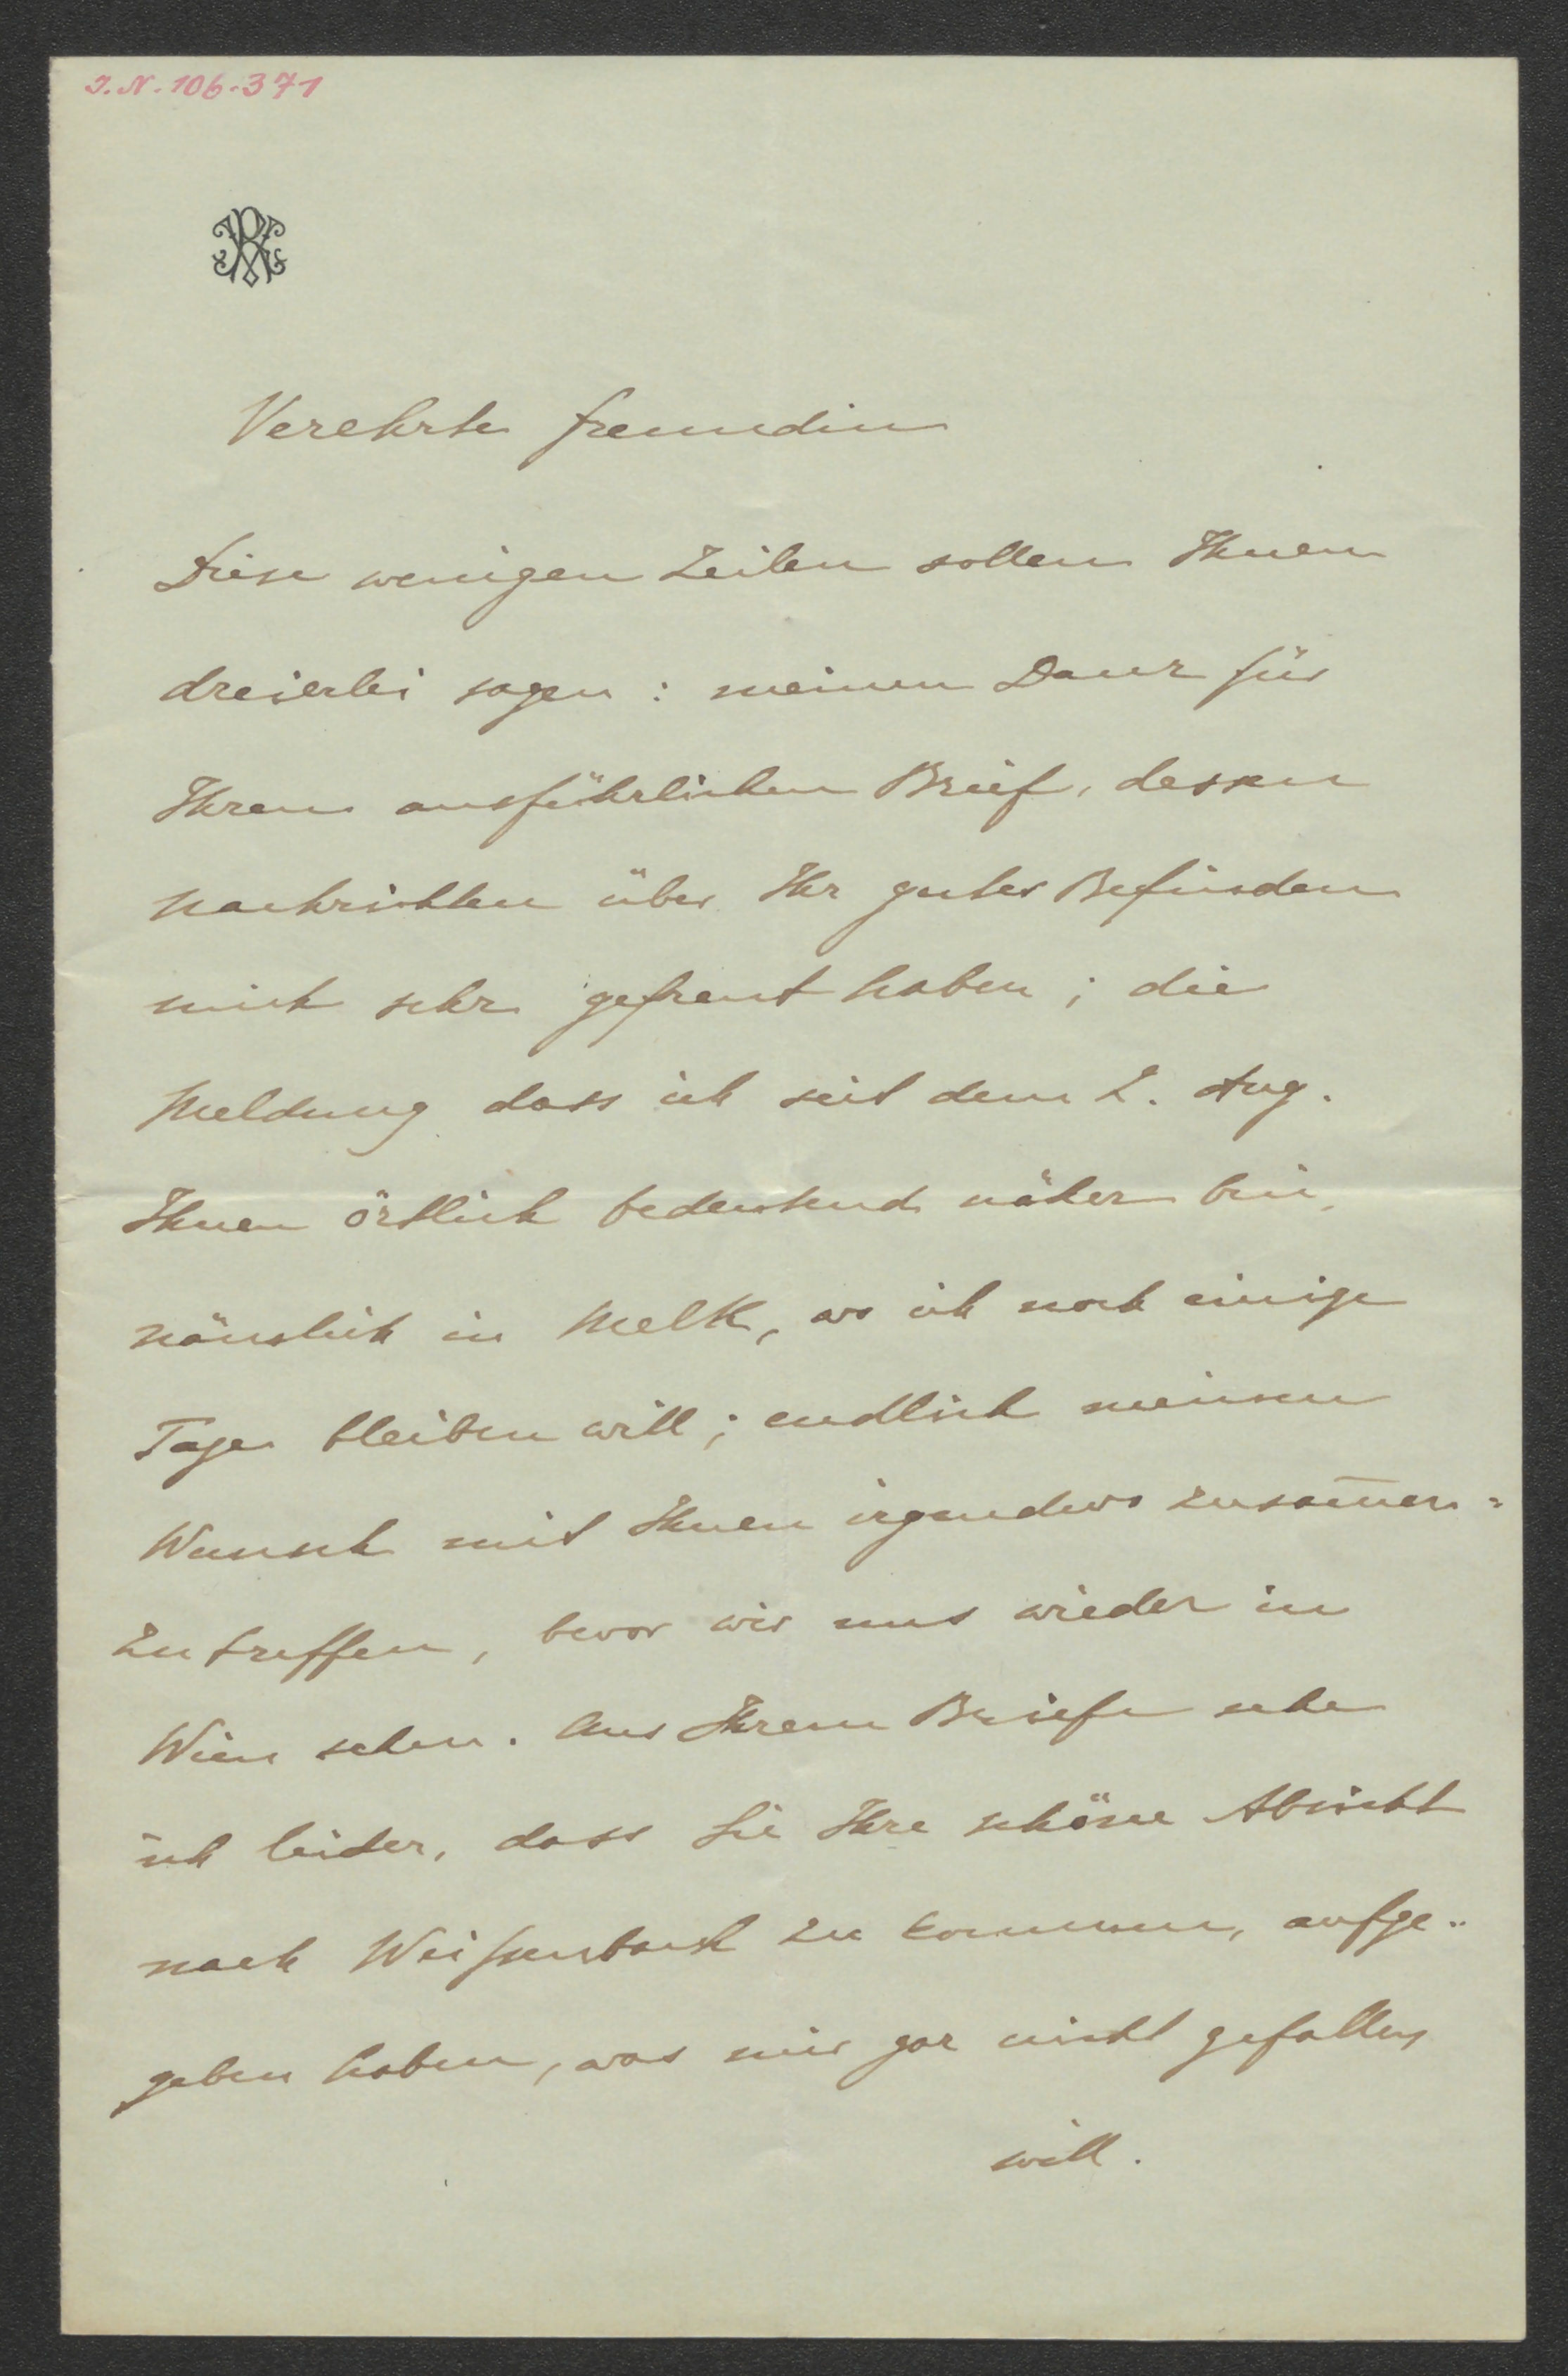 I.N. 106.371
Verehrte Freundin
Diese wenigen Zeilen sollen Ihnen
dreierlei sagen: meinen Dank für
Ihren ausführlichen Brief, dessen
Nachrichten über Ihr gutes Befinden
mich sehr gefreut haben; die
Meldung dass ich seit dem 2. Aug.
Ihnen örtlich bedeutend näher bin,
nämlich in Melk, wo ich noch einige
Tage bleiben will; endlich meinen
Wunsch mit Ihnen irgendwo zusam̅en=
zutreffen, bevor wir uns wieder in
Wien sehen. Aus Ihrem Briefe sehe
ich leider, dass Sie Ihre schöne Absicht
nach Weißenbach zu kommen, aufge=
geben haben, was mir gar nicht gefallen
will.